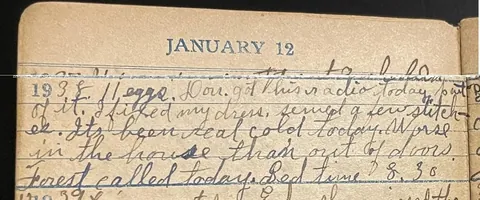 JANUARY 12
1938. 11 eggs. Don. got this radio today, part
of it. I fixed my dress, sewed a few stitch-
es. Its been real cold today. Worse
in the house than out of doors.
Forest called today. Bed time 8.30